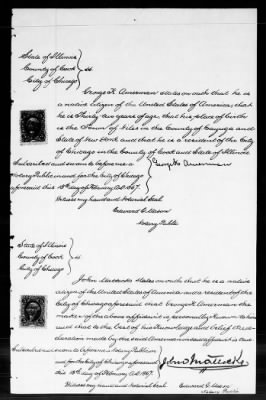 State of Illinois
County of Cook } ss
City of Chicago
George H. Amerman states on oath that he is
a native citizen of the United States of America; that
he is Thirty two years of age, that his place of birth
is the Town of Niles in the County of Cayuga and
State of New York and that he is a resident of the City
of Chicago in the County of Cook and State of Illinois
Subscribed and sworn to before me a
Notary Public in and for the City of Chicago
aforesaid this 18th day of February A.D. 1867.
George H. Amerman
Witness my hand and Notarial Seal
Edward G. Mason
Notary Public
State of Illinois
County of Cook } ss
City of Chicago
John Mattocks states on oath that he is a native
citizen of the United States of America and a resident of the
City of Chicago aforesaid that George H. Amerman the
maker of the above affidavit is personally known to him
and that to the best of his knowledge and belief the
declaration made by the said Amerman in said affidavit is true
Subscribed and sworn to before me a Notary Public in
and for the City of Chicago aforesaid
this 18th day of February A.D. 1867.
John Mattocks
Witness my hand and Notarial Seal
Edward G. Mason
Notary Public